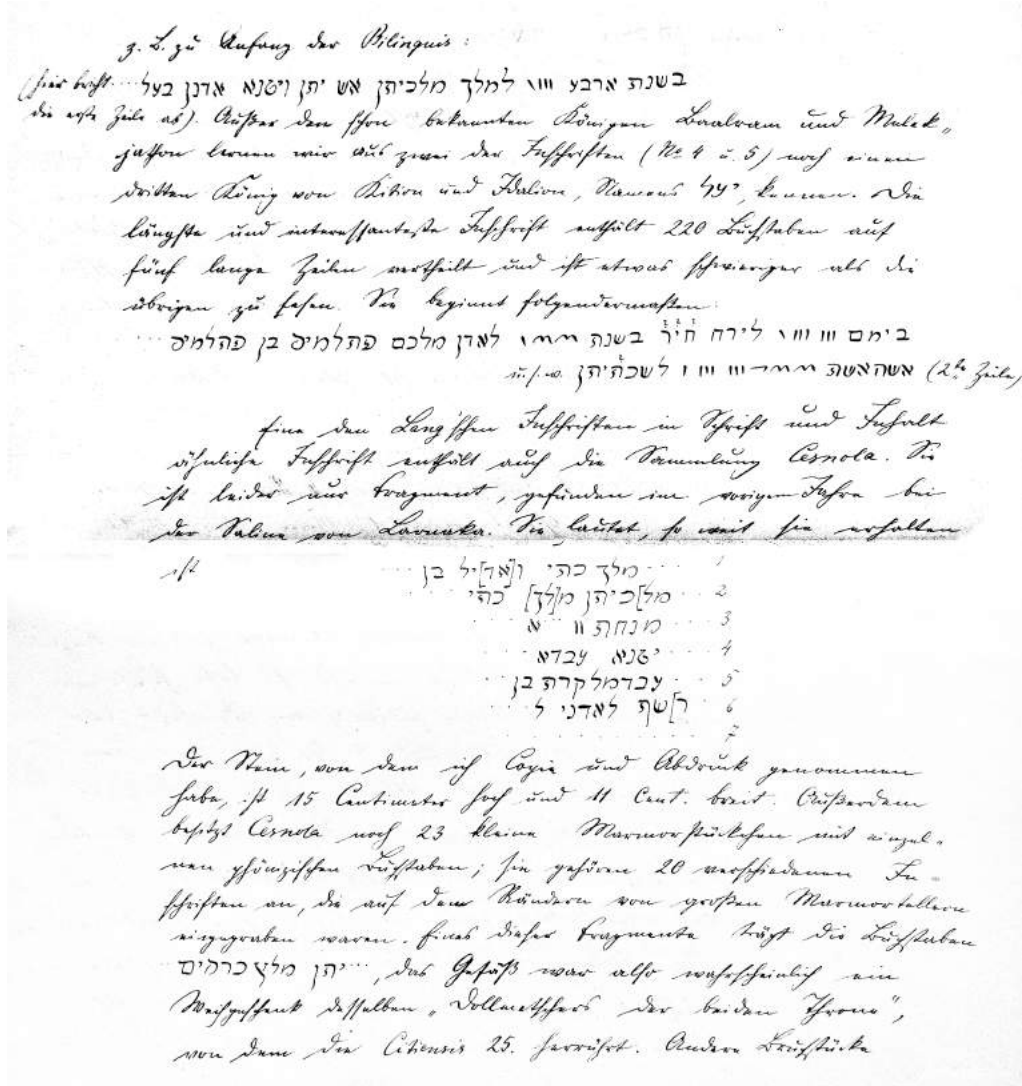 z. B. zu Anfang der Bilinguis:
בשנת ארבע ווו למלך מלכיתן אש יתן ויטנא אדנן בעל .... (hier bricht
die erste Zeile ab). Außer den schon bekannten Königen Baalram und Malek„
jathon lernen wir aus zwei der Inschriften (No 4 u. 5) noch einen
dritten König von Kition und Idalion, Namens kennen. Die
längste und interessanteste Inschrift enthält 220 Buchstaben auf
fünf lange Zeilen vertheilt und ist etwas schwieriger als die
übrigen zu lesen. Sie beginnt folgendermaßen:
בימם לירח חיר בשנת לאדן מלכם פתלמיס בן פתלמיס ...
(2te Zeile) אשהאשת לשכתיתן u. s. w.
Eine den Lang'schen Inschriften in Schrift und Inhalt
ähnliche Inschrift enthält auch die Sammlung Cesnola. Sie
ist leider nur Fragment, gefunden im vorigen Jahre bei
der Saline von Larnaka. Sie lautet, so weit sie erhalten
ist
1 .... מלך כתי ו[אד]יל בן ....
2 ... מל]כיתן מ[לך] כתי ...
3 .... מנחת וו א ....
4 .... יטנא עבדא
5 .... עבדמלקרת בן ....
6 ר]שף לאדני ל ....
7 . . . . . .
Der Stein, von dem ich Copie und Abdruck genommen
habe, ist 15 Centimeter hoch und 11 Cent. breit. Außerdem
besitzt Cesnola noch 23 kleine Marmorstückchen mit einzel-
nen phönizischen Buchstaben; sie gehören 20 verschiedenen In-
schriften an, die auf dem Rändern von großen Marmortellern
eingegraben waren. Eines dieser Fragmente trägt die Buchstaben
... יתן מלץ כרסים, das Gefäß war also wahrscheinlich ein
Weihgeschenk desselben „Dollmetschers der beiden Throne",
von dem die Citiensis 25. herrührt. Andere Bruchstücke